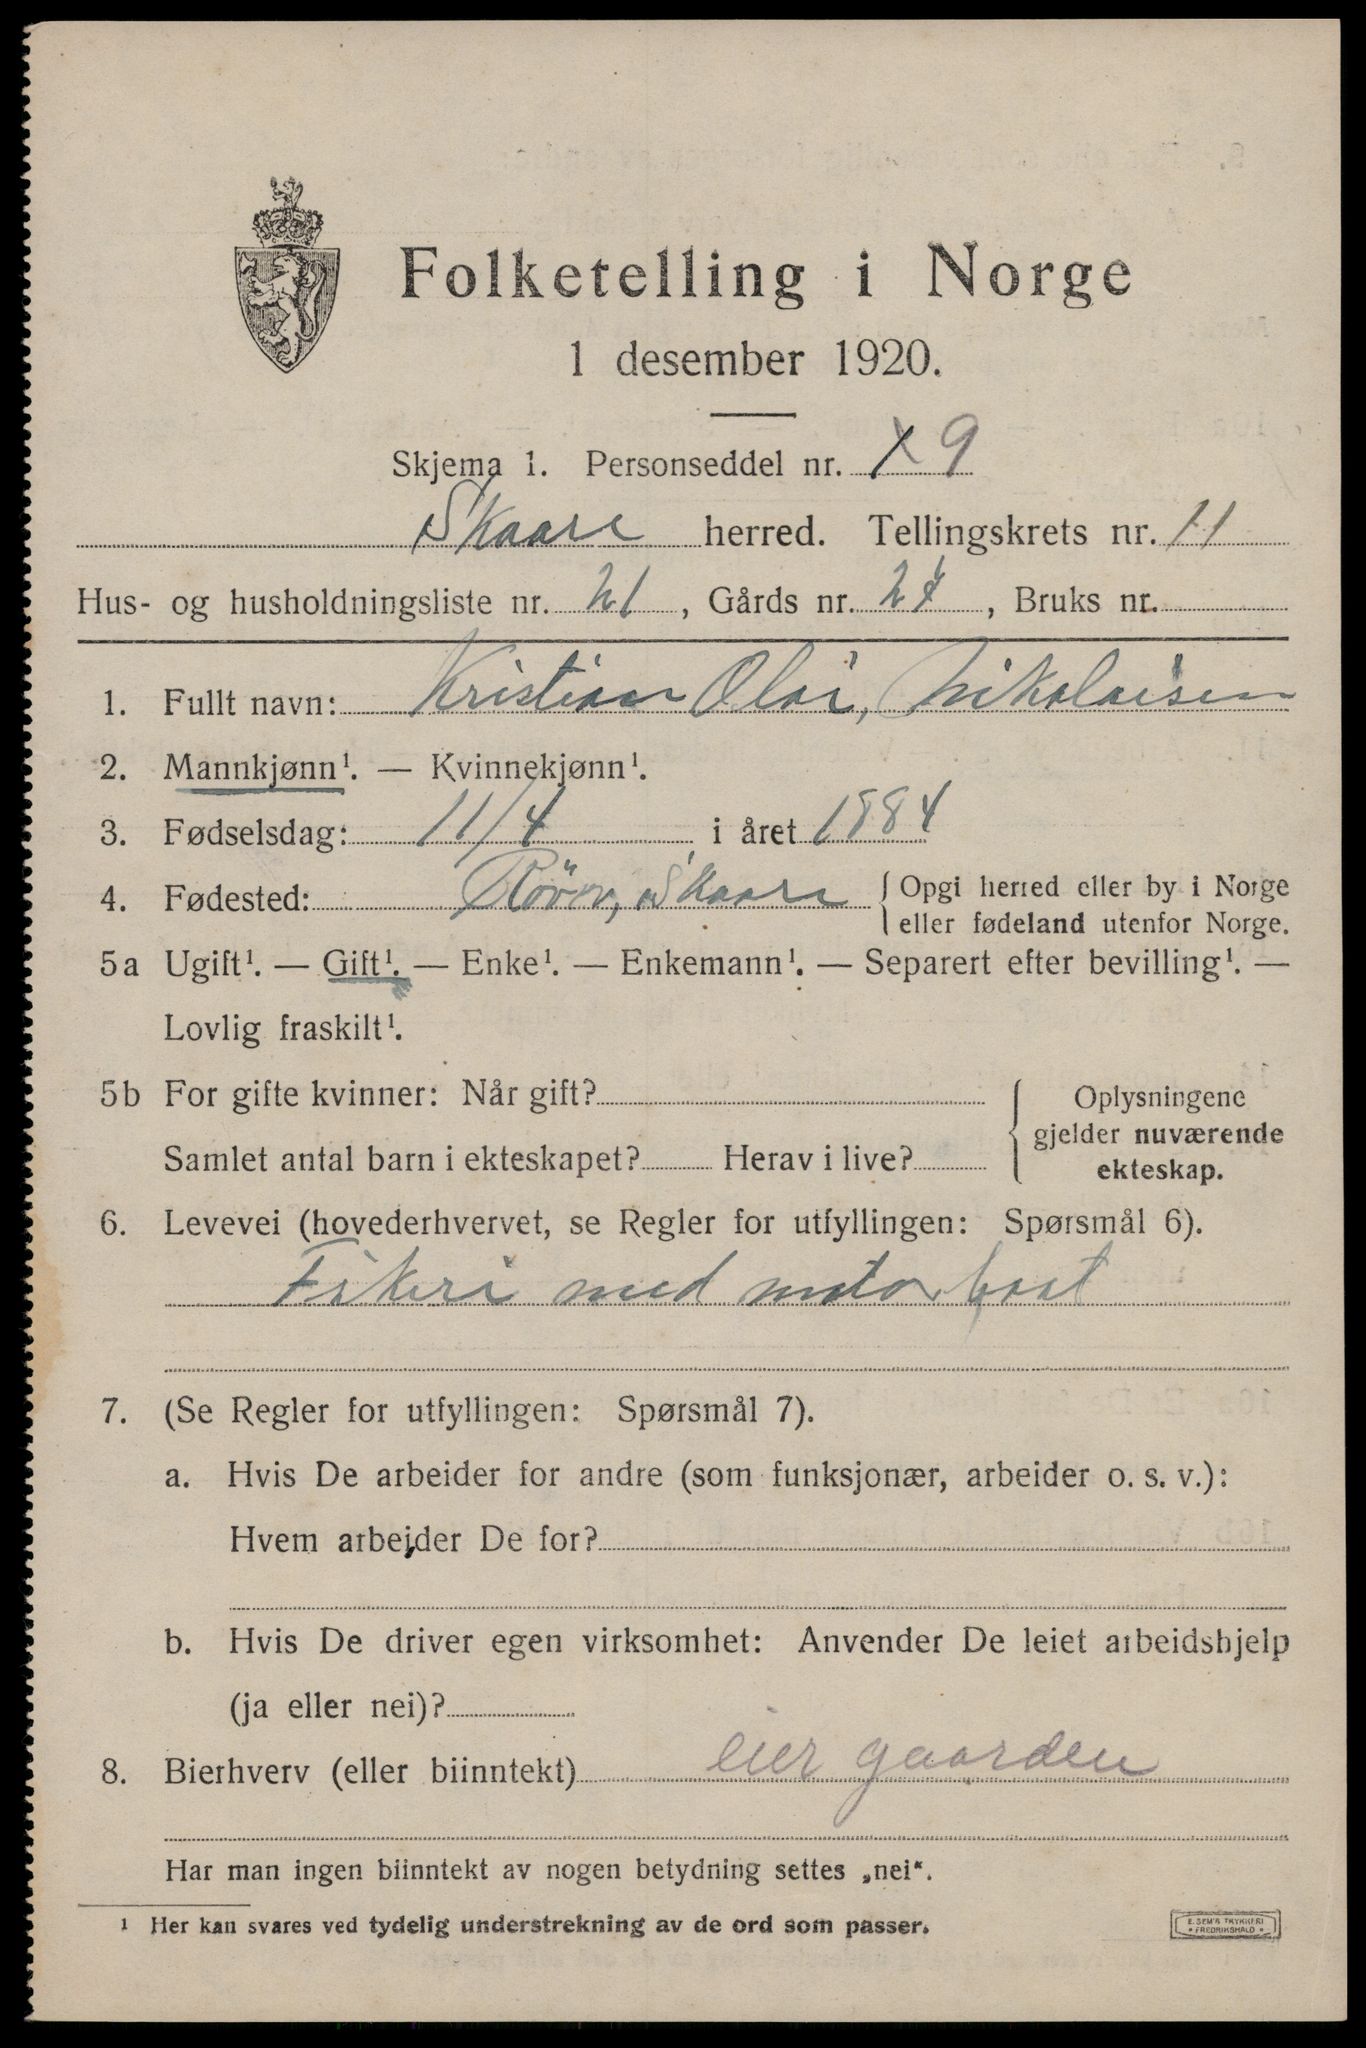 Folketelling i Norge
1 desember 1920.
Skjema 1. Personseddel nr. 9
Skaare herred. Tellingskrets nr. 11
Hus- og husholdningsliste nr. 21, Gårds nr. 24, Bruks nr.
1. Fullt navn: Kristian Olai, Nikolaisen
2. Mannkjønn¹. — Kvinnekjønn¹.
3. Fødselsdag: 11/4 i året 1884
4. Fødested: Røvær, Skaare { Opgi herred eller by i Norge
eller fødeland utenfor Norge.
5a Ugift¹. — Gift¹. — Enke¹. — Enkemann¹. — Separert efter bevilling¹. —
Lovlig fraskilt¹.
5b For gifte kvinner: Når gift?
Samlet antal barn i ekteskapet? Herav i live?
Oplysningene
gjelder nuværende
ekteskap.
6. Levevei (hovederhvervet, se Regler for utfyllingen: Spørsmål 6).
Fiskeri med motorbaat
7. (Se Regler for utfyllingen: Spørsmål 7).
a. Hvis De arbeider for andre (som funksjonær, arbeider o. s. v.):
Hvem arbeider De for?
b. Hvis De driver egen virksomhet: Anvender De leiet arbeidshjelp
(ja eller nei)?
8. Bierhverv (eller biinntekt) eier gaarden
Har man ingen biinntekt av nogen betydning settes „nei“.
¹ Her kan svares ved tydelig understrekning av de ord som passer.
E. SEM'S TRYKKERI
* FREDRIKSHALD *